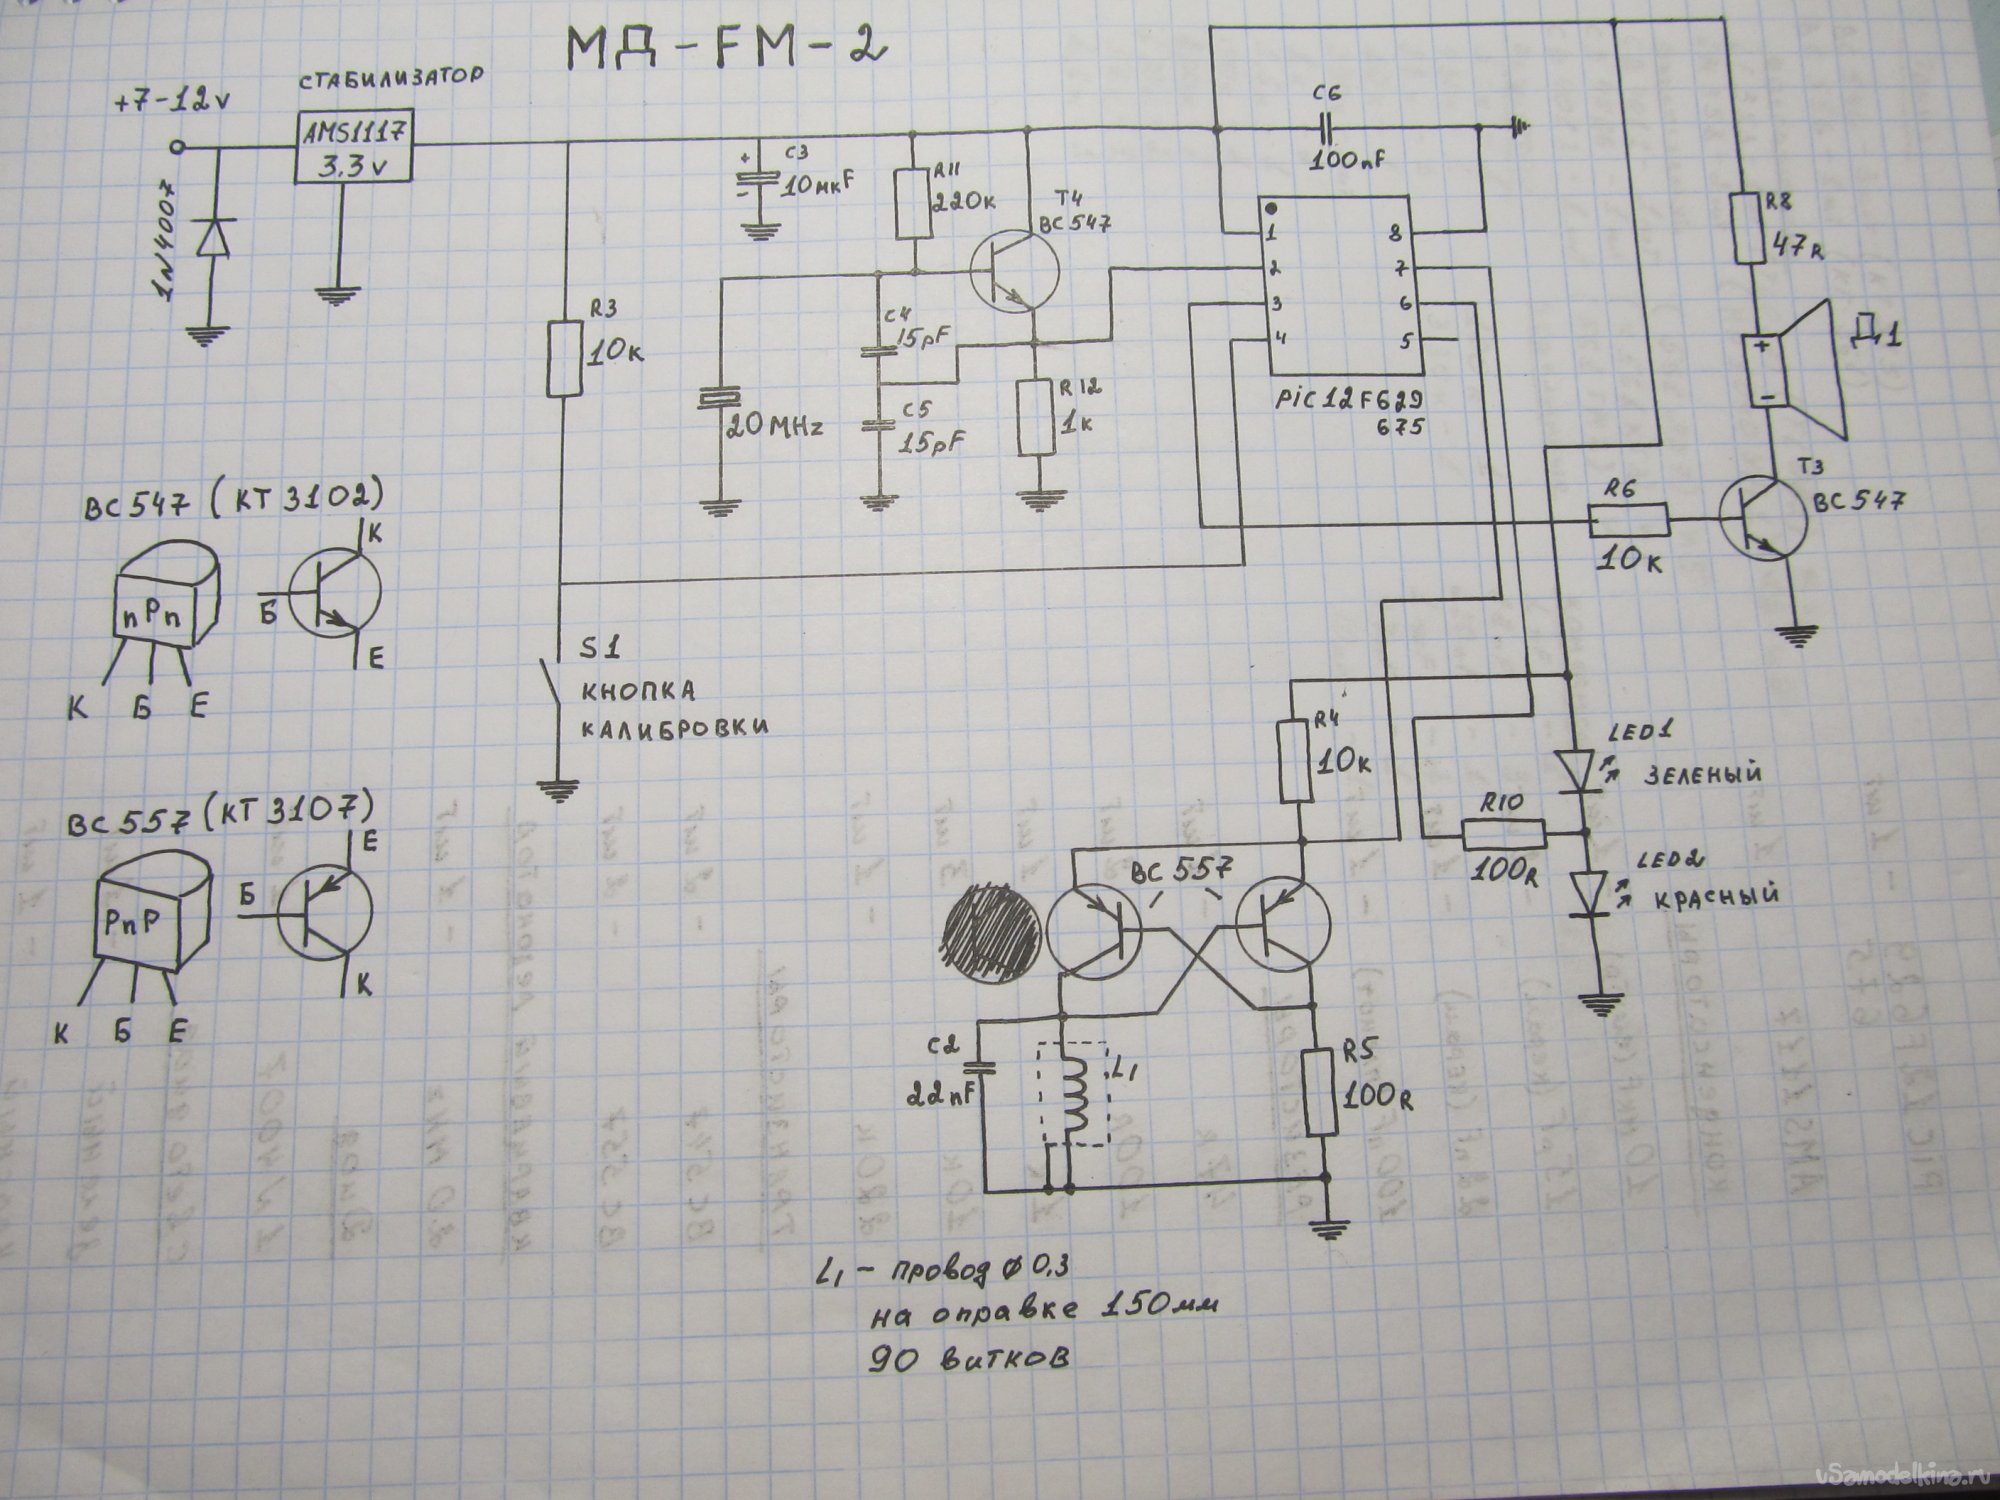 МД-FM-2
+7-12v
СТАБИЛИЗАТОР
AMS1117
3.3v
1N4007
C3
+
10мкF
-
R11
220к
T4
BC547
C6
100nF
R3
10к
C4
15pF
C5
15pF
20MHz
R12
1к
1
2
3
4
8
7
6
5
PiC12F629
675
R8
47R
+
-
Д1
T3
BC547
R6
10к
BC547 (КТ3102)
nPn
К Б Е
Б
К
Е
S1
КНОПКА
КАЛИБРОВКИ
BC557 (КТ3107)
PnP
К Б Е
Б
Е
К
R4
10к
LED1
ЗЕЛЕНЫЙ
R10
100R
LED2
КРАСНЫЙ
BC557
C2
22nF
L1
R5
100R
L1 - провод ϕ 0,3
на оправке 150мм
90 витков
vSamodelkina.ru